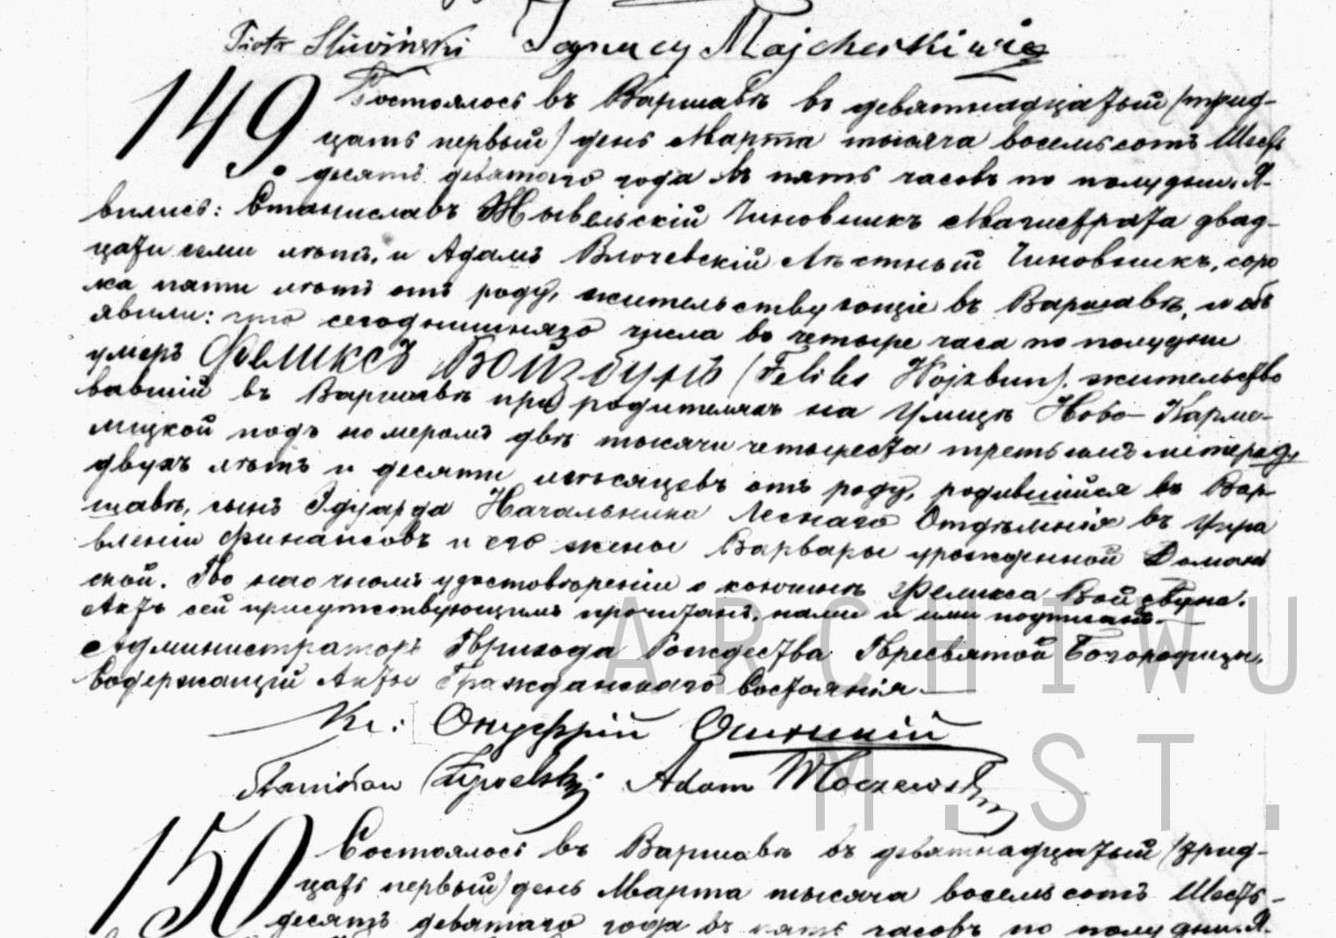 Piotr Śliwiński Ignacy Majcherkiewicz
149. Состоялось въ Варшавѣ въ девятнадцатый /трид-
цать первый/ день Марта тысяча восемьсотъ Шесть
десятъ девятаго года въ пять часовъ по полудни. Я-
вились: Станиславъ Жывельскій Чиновникъ Магистрата двад-
цати семи лѣтъ, и Адамъ Влочевскій Лѣстный Чиновникъ, соро
ка пяти лѣтъ отъ роду, жительствующіе въ Варшавѣ, и объ
явили: что сегоднишняго числа во четыре часа по полудни
умеръ Феликсъ Войзбунъ /Feliks Wojzbun/. жительство
вавшій въ Варшавѣ при родителяхъ на Улицѣ Ново-Карме-
лицкой подъ номеромъ двѣ тысячи четыреста третьимъ литера
двухъ лѣтъ и десяти мѣсяцевъ отъ роду, родившійся въ Вар
шавѣ, сынъ Эдуарда Начальника Леснаго Отдѣленія въ Упра
вленіи Финансовъ и его жены Варвары урожденной Доман
ской. По наочномъ удостовѣреніи о кончинѣ Феликса Войзбуна.
Актъ сей присутствующимъ прочитанъ, нами и ими подписанъ.
Администраторъ Прихода Рождества Пресвятой Богородицы,
Содержащій Акты Гражданскаго Состоянія
Кс: Онуфрій
Stanisław Adam Włoczewski
150 Состоялось въ Варшавѣ въ девятнадцатый /трид-
цать первый/ день Марта тысяча восемьсотъ Шесть-
десятъ девятаго года въ пять часовъ по полудни. Я-
ARCHIWU
M.ST.